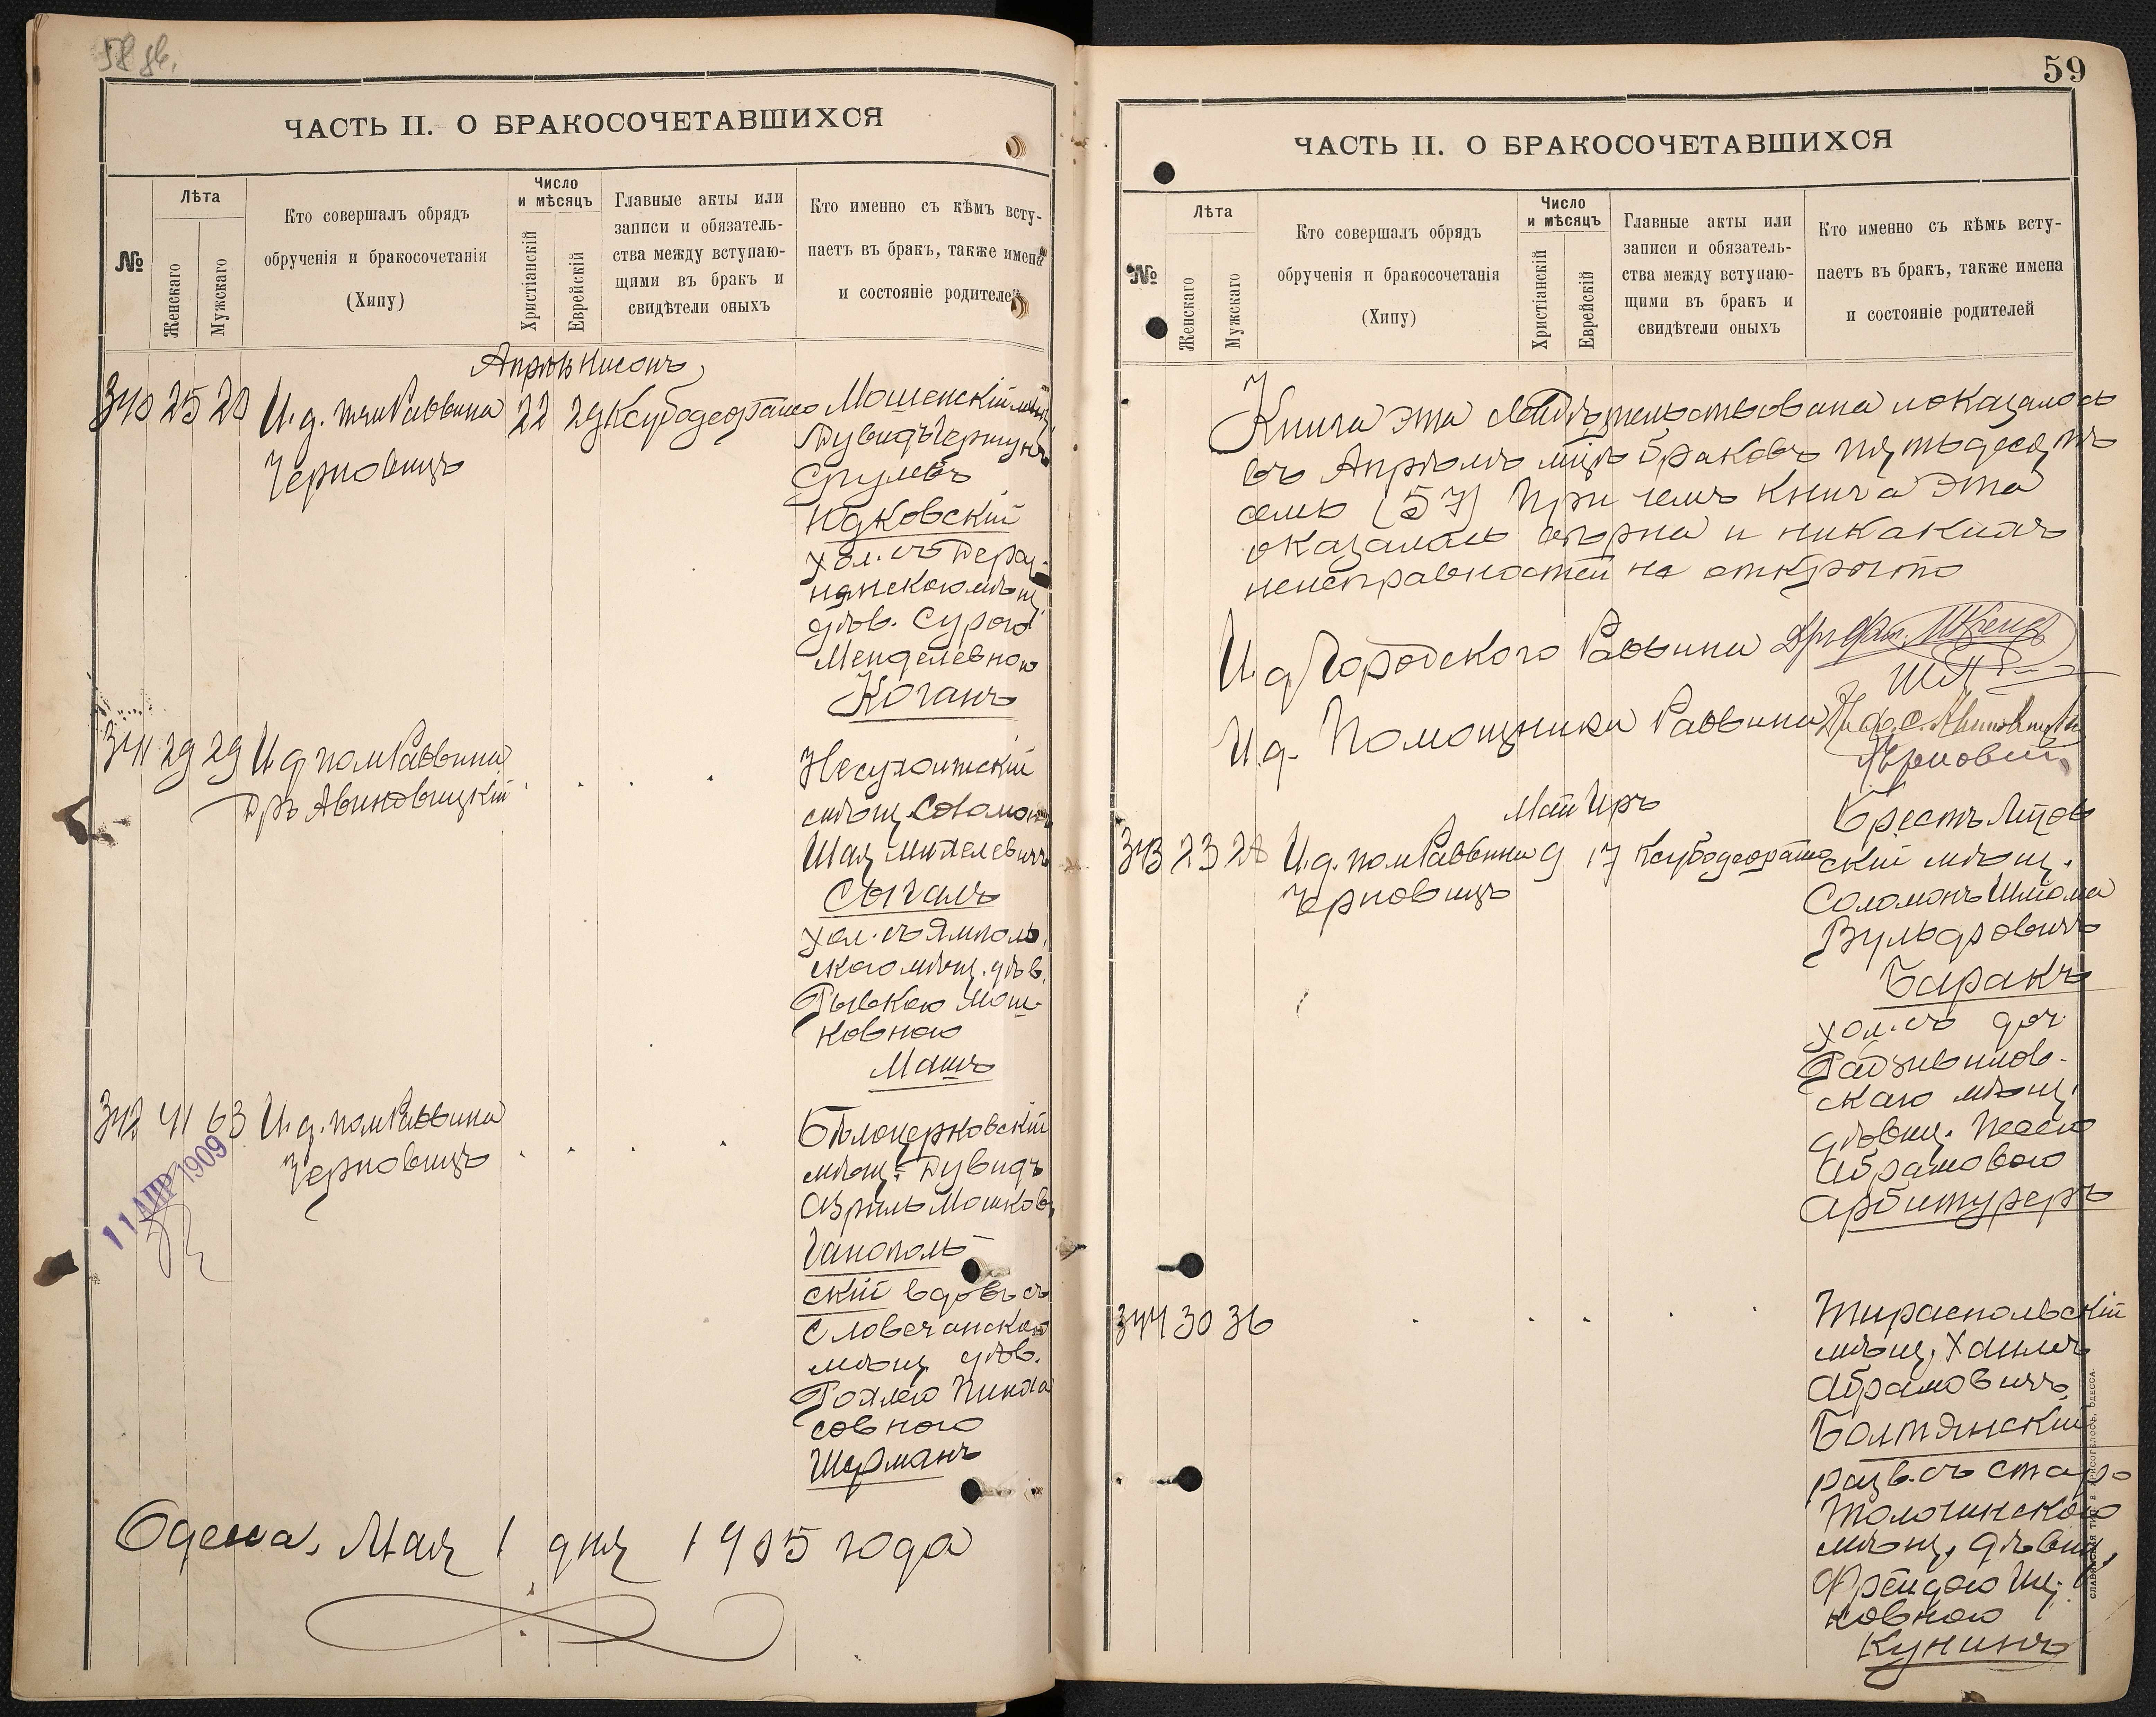 ЧАСТЬ II. О БРАКОСОЧЕТАВШИХСЯ
№
Лѣта
Женскаго
Мужскаго
Кто совершалъ обрядъ
обрученія и бракосочетанія
(Хипу)
Число
и мѣсяцъ
Христіанскій
Еврейскій
Главные акты или
записи и обязатель-
ства между вступаю-
щими въ бракъ и
свидѣтели оныхъ
Кто именно съ кѣмъ всту-
паетъ въ бракъ, также имена
и состояніе родителей
340 25 28 И.д. пом Раввина 22 29
Черновицъ
Дувидъ
Срулевъ
Юдковскій
хол. съ Дераж-
нянскою мѣщ.
дѣв. Сурою
Менделевною
Коганъ
341 29 29 И.д. пом Раввина
Дръ Авиновицкій
мѣщ. Соломонъ
Сыгалъ
хол. съ Ямполь
скою мѣщ. дѣв.
Рывкою Мош-
ковною
Машъ
342 41 63 И.д. пом Раввина
Черновицъ
Бѣлоцерковскій
мѣщ. Дувидъ
Азріиль Мошков.
Ганополь-
скій вдов. съ
Словечанскою
мѣщ. дѣв.
Рохлею Пинха
совною
Шерманъ
11 АПР 1909
Одесса, Мая 1 дня 1905 года
59
ЧАСТЬ II. О БРАКОСОЧЕТАВШИХСЯ
№
Лѣта
Женскаго
Мужскаго
Кто совершалъ обрядъ
обрученія и бракосочетанія
(Хипу)
Число
и мѣсяцъ
Христіанскій
Еврейскій
Главные акты или
записи и обязатель-
ства между вступаю-
щими въ бракъ и
свидѣтели оныхъ
Кто именно съ кѣмъ всту-
паетъ въ бракъ, также имена
и состояніе родителей
Книга эта свидѣтельствована и оказалось
въ Апрѣлѣ мцѣ браковъ пятьдесятъ
семь (57) При чемъ книга эта
оказалась вѣрна и никакихъ
неисправностей не открыто
И.д. Городского Раввина
И.д. Помощника Раввина
Май Иръ
343 23 28 И.д. пом Раввина 9 17
Черновицъ
Брестъ Литов
скій мѣщ.
Соломонъ Шлема
Вульфовичъ
Баракъ
хол. съ доч.
Радзивилов-
скаго мѣщ.
дѣвиц.
Абрамовою
Арбитуреръ
344 30 36
Тираспольскій
мѣщ. Хаимъ
Абрамовичъ
Болтянскій
разв. съ старо
Толочинскою
мѣщ. дѣвиц.
Фрейдою Иц-
ковною
Кунинъ